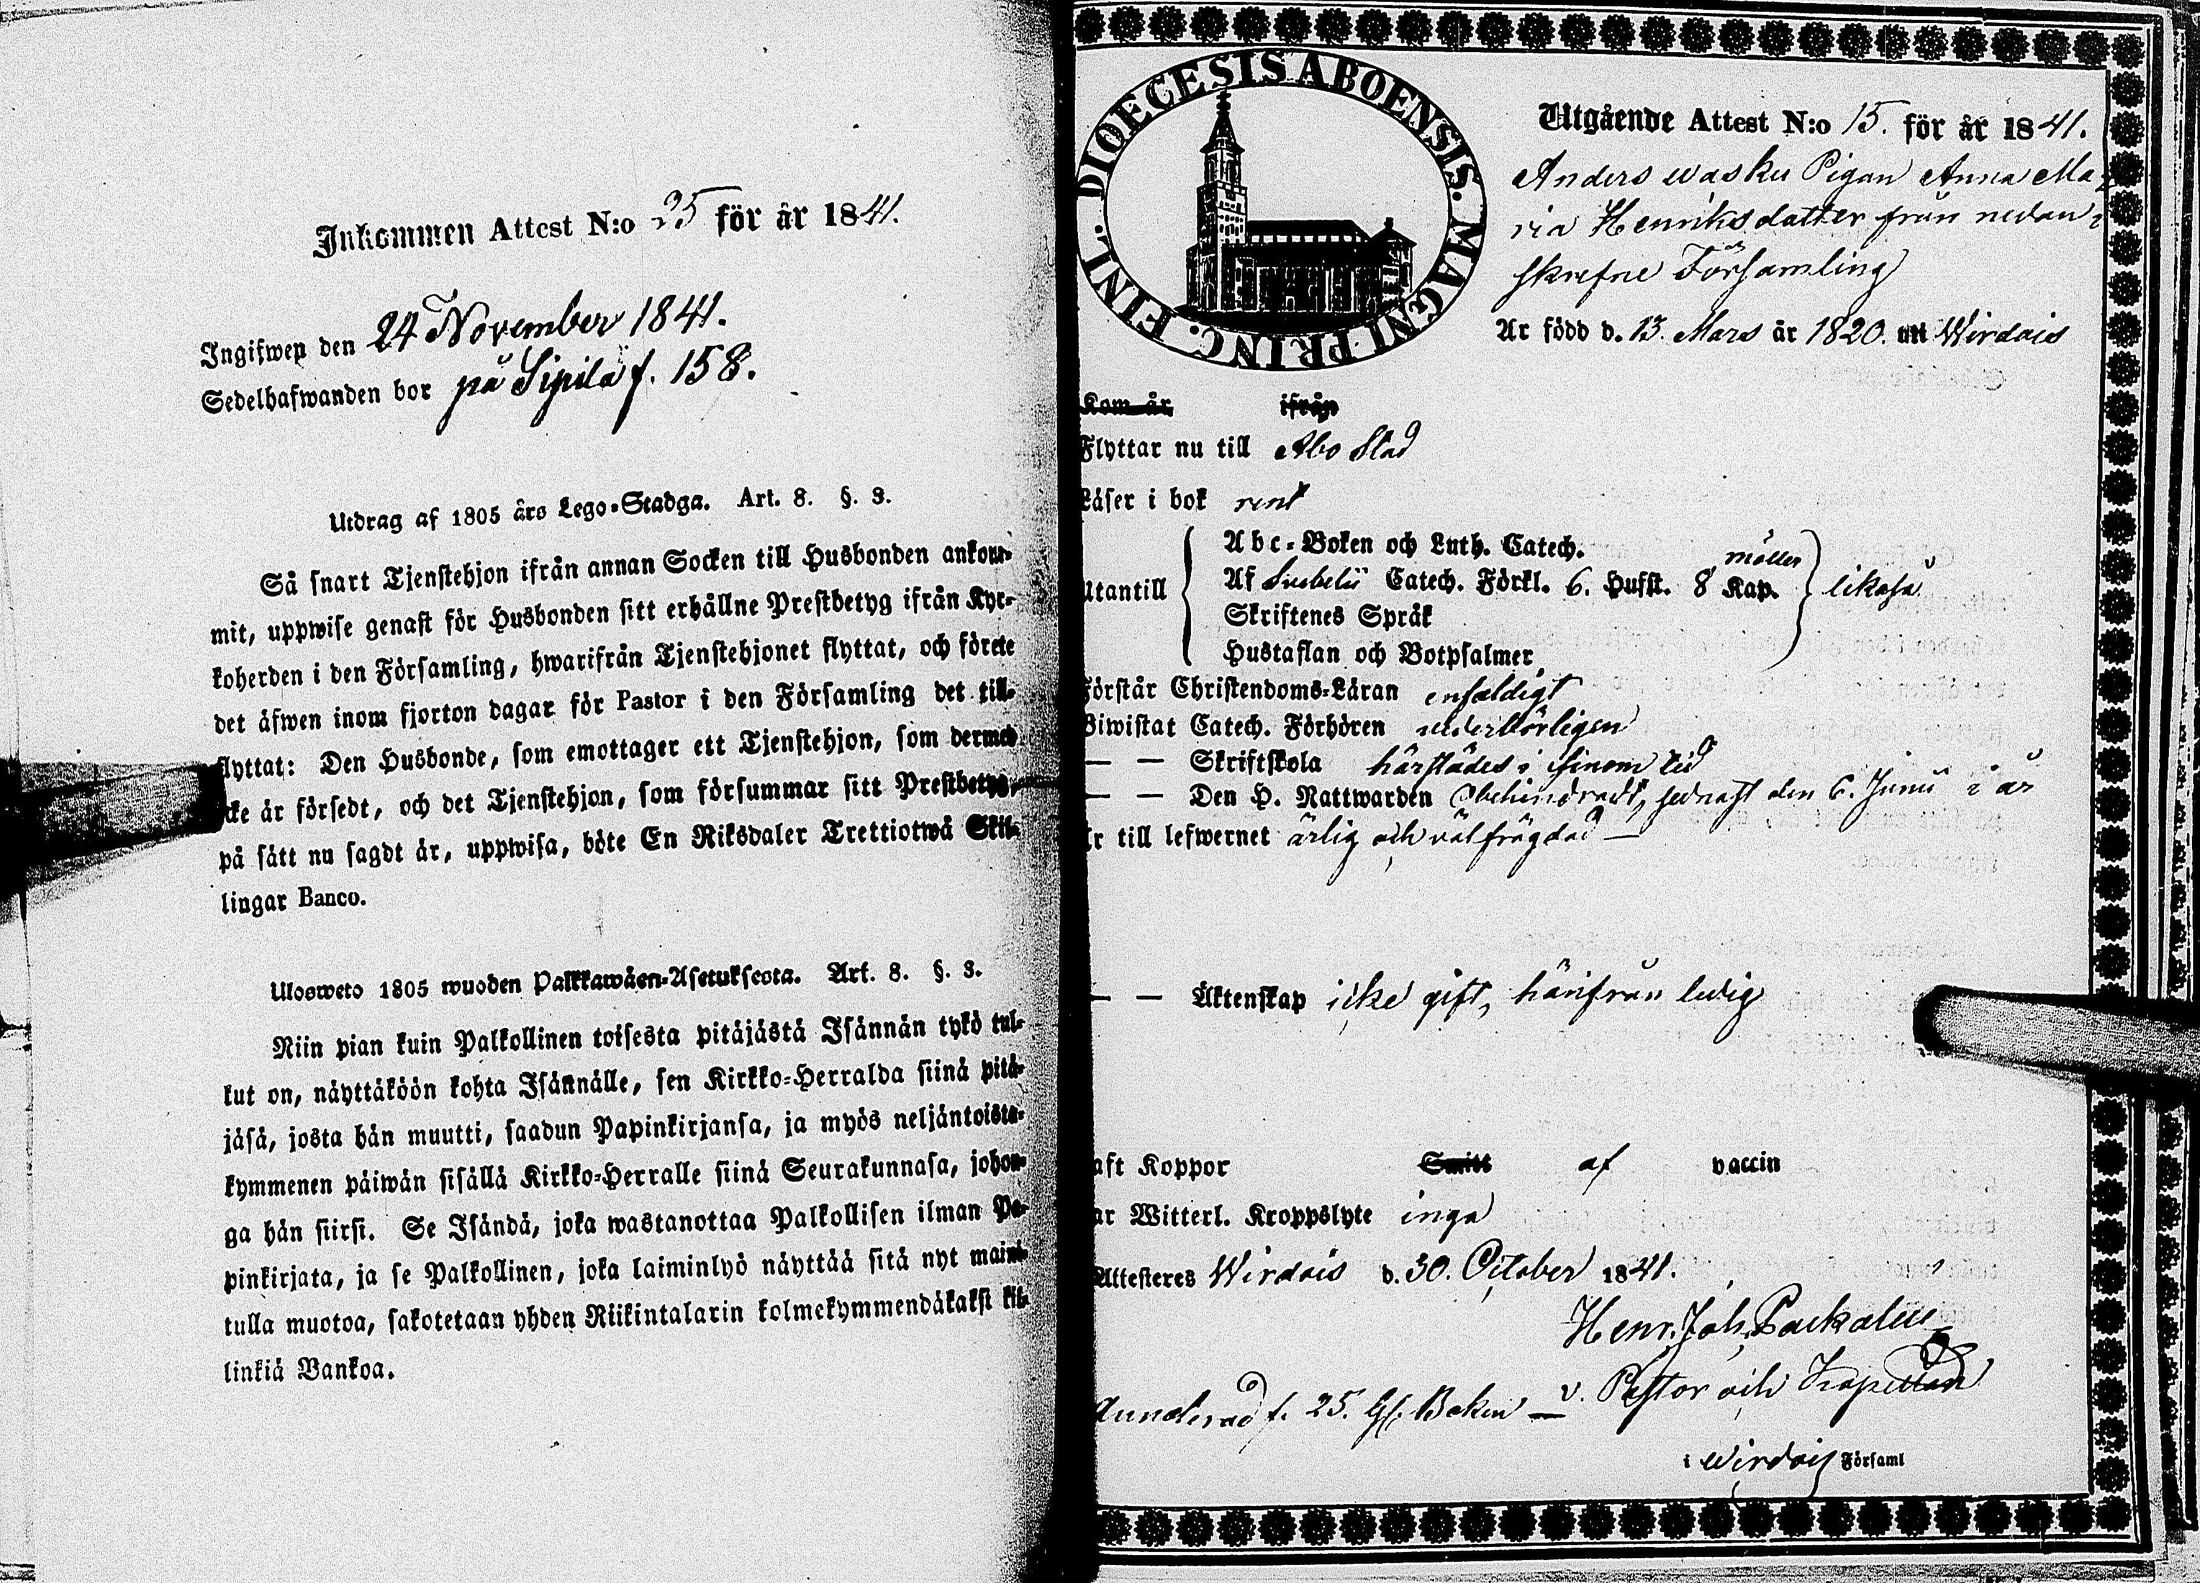 Inkommen Attest N:o 25 för år 1841.
Ingifwen den 24 November 1841.
Sedelhafwanden bor på Sipilä f. 158.
Utdrag af 1805 års Lego-Stadga. Art. 8. §. 3.
Så snart Tjenstehjon ifrån annan Socken till Husbonden ankom-
mit, uppwise genast för Husbonden sitt erhållne Prestbetyg ifrån Kyr-
koherden i den Församling, hwarifrån Tjenstehjonet flyttat, och förete
det äfwen inom fjorton dagar för Pastor i den Församling det till-
flyttat: Den Husbonde, som emottager ett Tjenstehjon, som dermed
icke är försedt, och det Tjenstehjon, som försummar sitt Prestbetyg,
på sätt nu sagdt är, uppwisa, böte En Riksdaler Trettiotwå Skil-
lingar Banco.
Ulosweto 1805 wuoden Palkkawäen-Asetuksesta. Art. 8. §. 3.
Niin pian kuin Palkollinen toisesta pitäjästä Isännän tykö tul-
lut on, näyttäköön kohta Isännälle, sen Kirkko-Herralda siinä pitä-
jäsä, josta hän muutti, saadun Papinkirjansa, ja myös neljäntoista-
kymmenen päiwän sisällä Kirkko-Herralle siinä Seurakunnasa, johon-
ga hän siirsi. Se Isändä, joka wastanottaa Palkollisen ilman Pa-
pinkirjata, ja se Palkollinen, joka laiminlyö näyttää sitä nyt maini-
tulla muotoa, sakotetaan yhden Riikintalarin kolmekymmendäkaksi kil-
linkiä Bankoa.
FINL. DIOECESIS ABOENSIS. MAGNI PRINC.
Utgående Attest N:o 15. för år 1841.
Anders wasku Pigan Anna Ma-
ria Henriksdotter från nedan-
skrefne Församling
Är född d. 13. Mars år 1820. uti Wirdois
Kom år ifrån
Flyttar nu till Åbo Stad
Läser i bok rent
Utantill
Abc-Boken och Luth. Catech.
Af Svebelii Catech. Förkl. 6. Hufst. 8 Kap.
Skriftenes Språk
Hustaflan och Botpsalmer
likaså
Förstår Christendoms-Läran enfaldigt
Biwistat Catech. Förhören vederbörligen
— — Skriftskola härstädes i sinom tid
— — Den H. Nattwarden obehindradt, sednast den 6. Junii i år
Är till lefwernet ärlig och välfrägdad —
— — Äktenskap icke gift, härifrån ledig
aft Koppor Smitt af vaccin
ar Witterl. Kroppslyte inga
Attesteres Wirdois d. 30. October 1841.
Henr. Joh.
v. Pastor och Kapellan
f. 25. Boken —
i Wirdois Församl